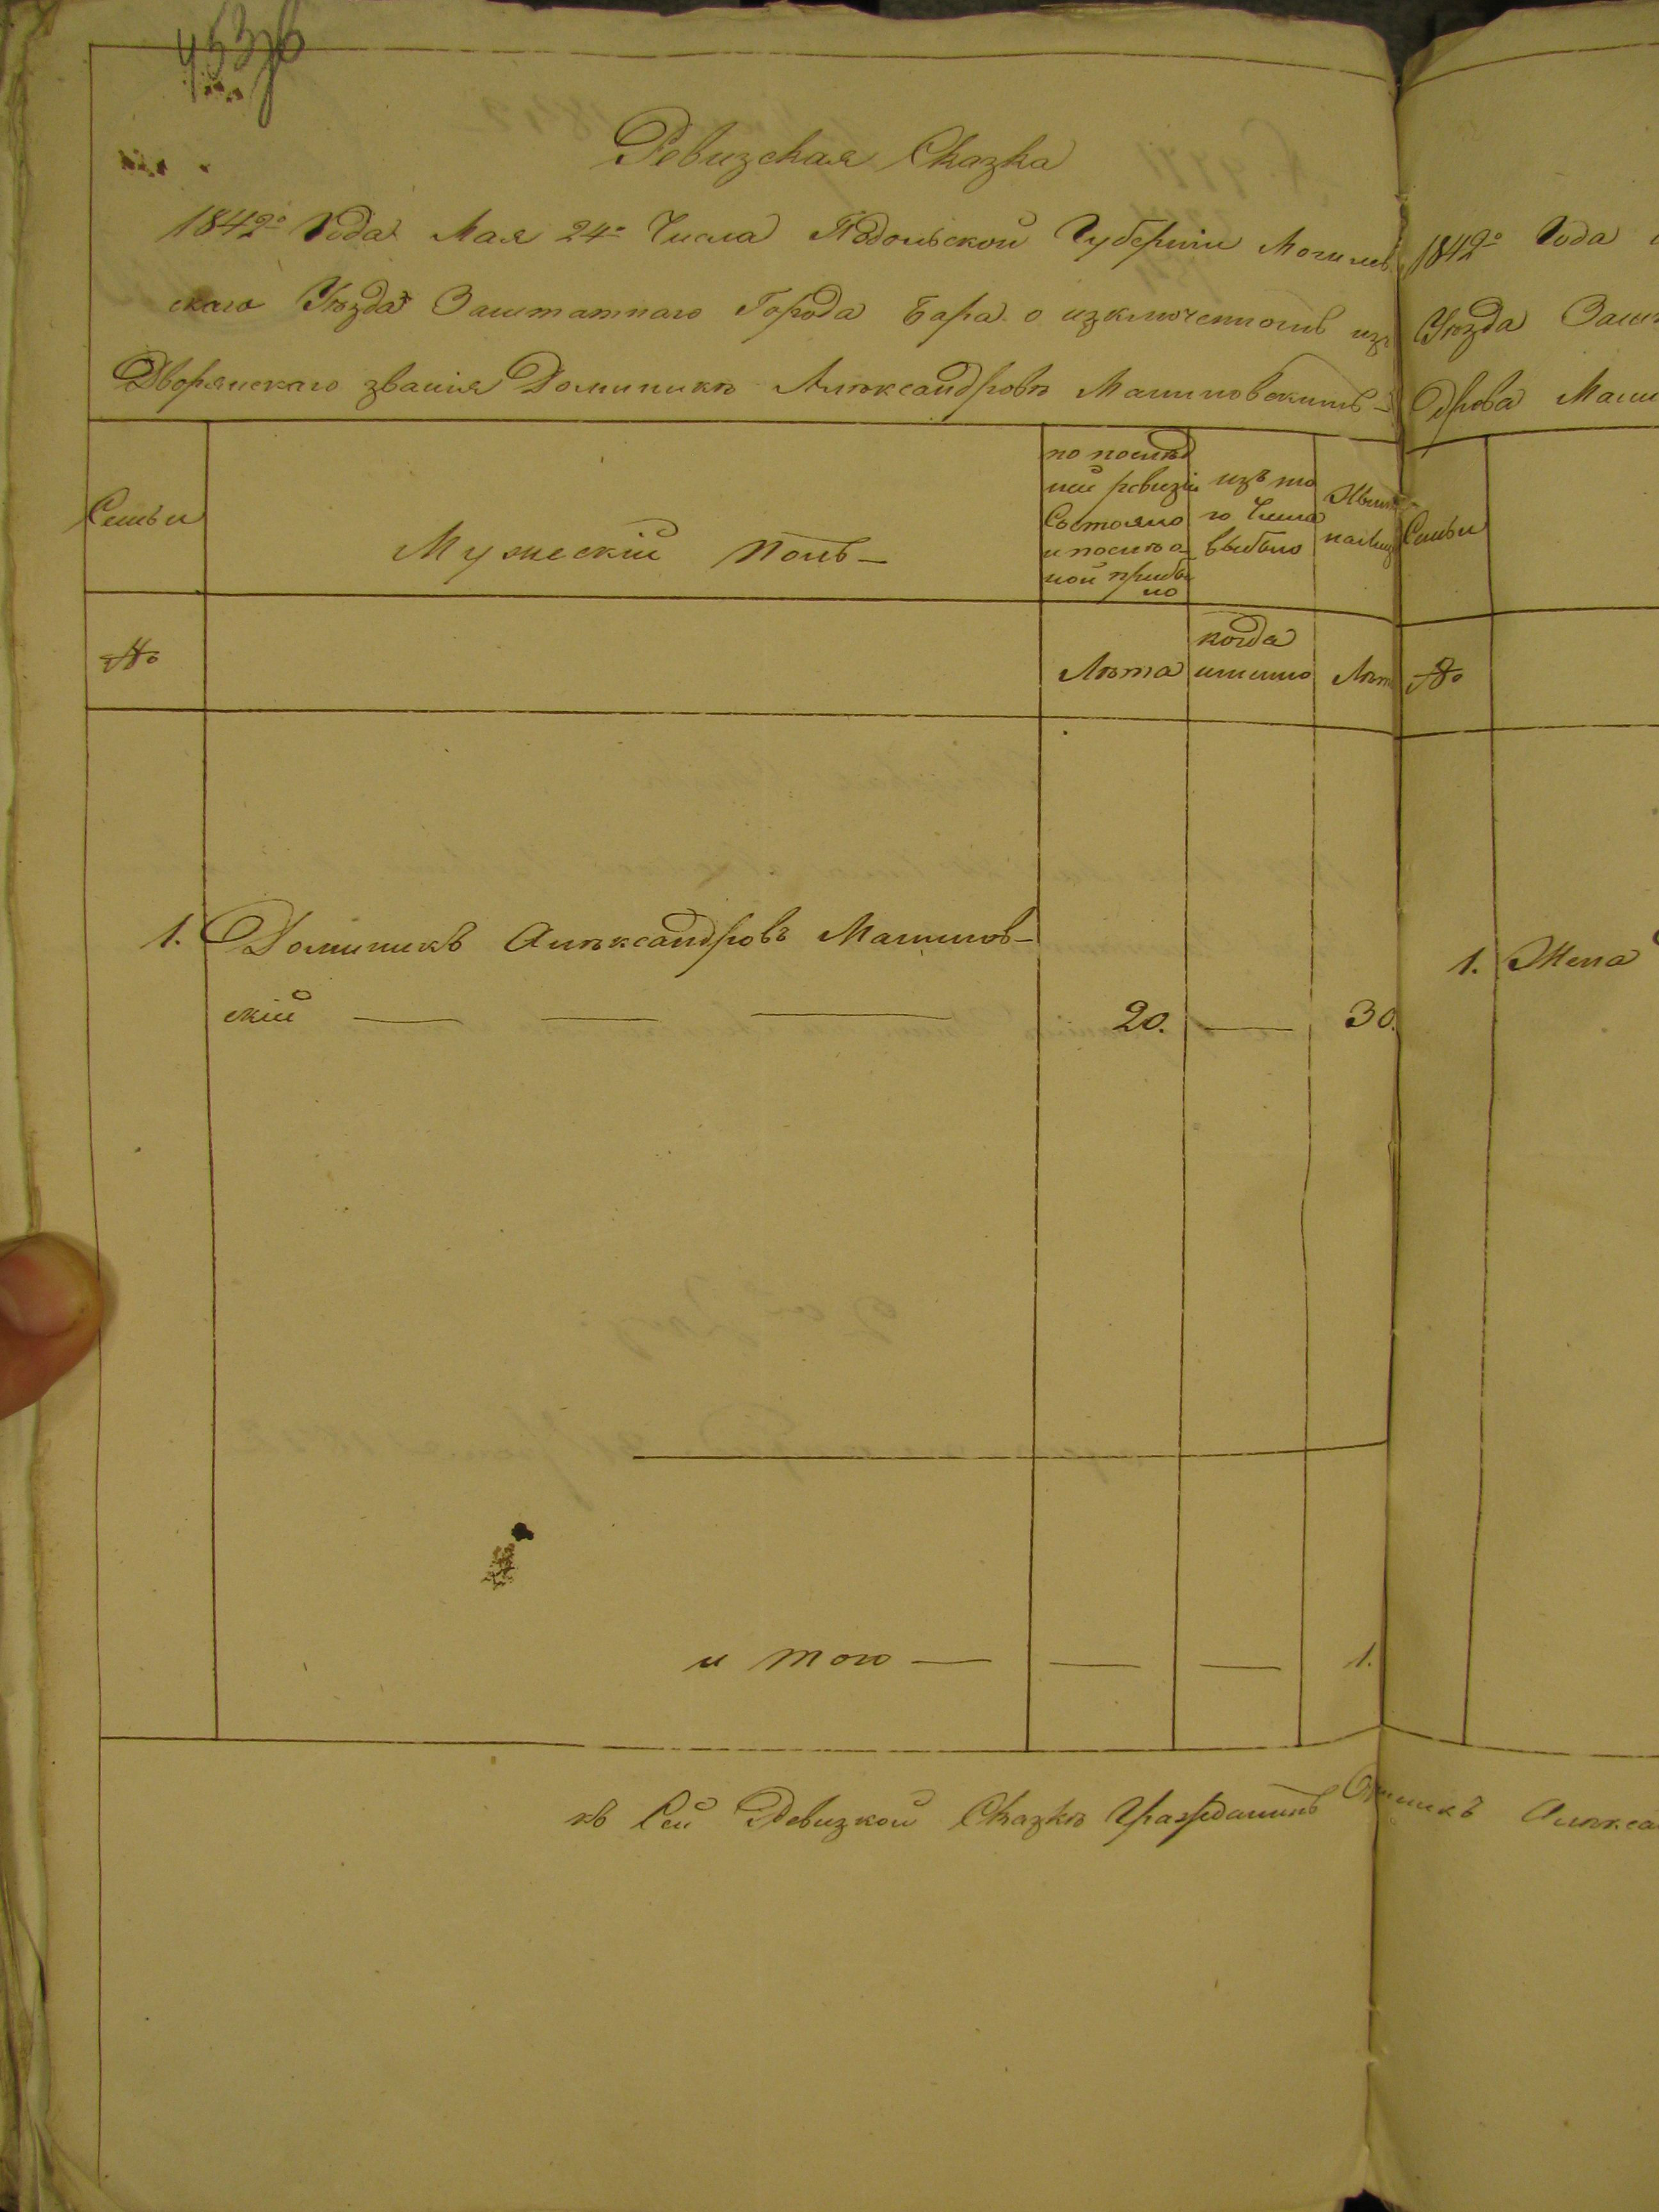 453 об
Ревизская Сказка
1842го Года Мая 24го Числа Подольской Губерніи Могилев
скаго Уѣзда Заштатнаго Города Бара о изключенномъ изъ
Дворянскаго званія Доминикѣ Алѣксандровѣ Малиновскимъ -
Семьи
Мужескій полъ -
по послѣд
ней ревизіи
Состояло
и послѣ о
ной прибы
ло
изъ то
го Числа
выбыло
Нынѣ
налицо
№
Лѣта
когда
имянно
Лѣт
1. Доминикъ Алѣксандровъ Малинов-
скій — — — 20. — 30.
и того — — — 1.
къ Сей Ревизкой Сказкѣ Гражданинъ Алѣкса
1842го Года
Уѣзда Зашт
дрова Мали
Семьи
№
1. Жена